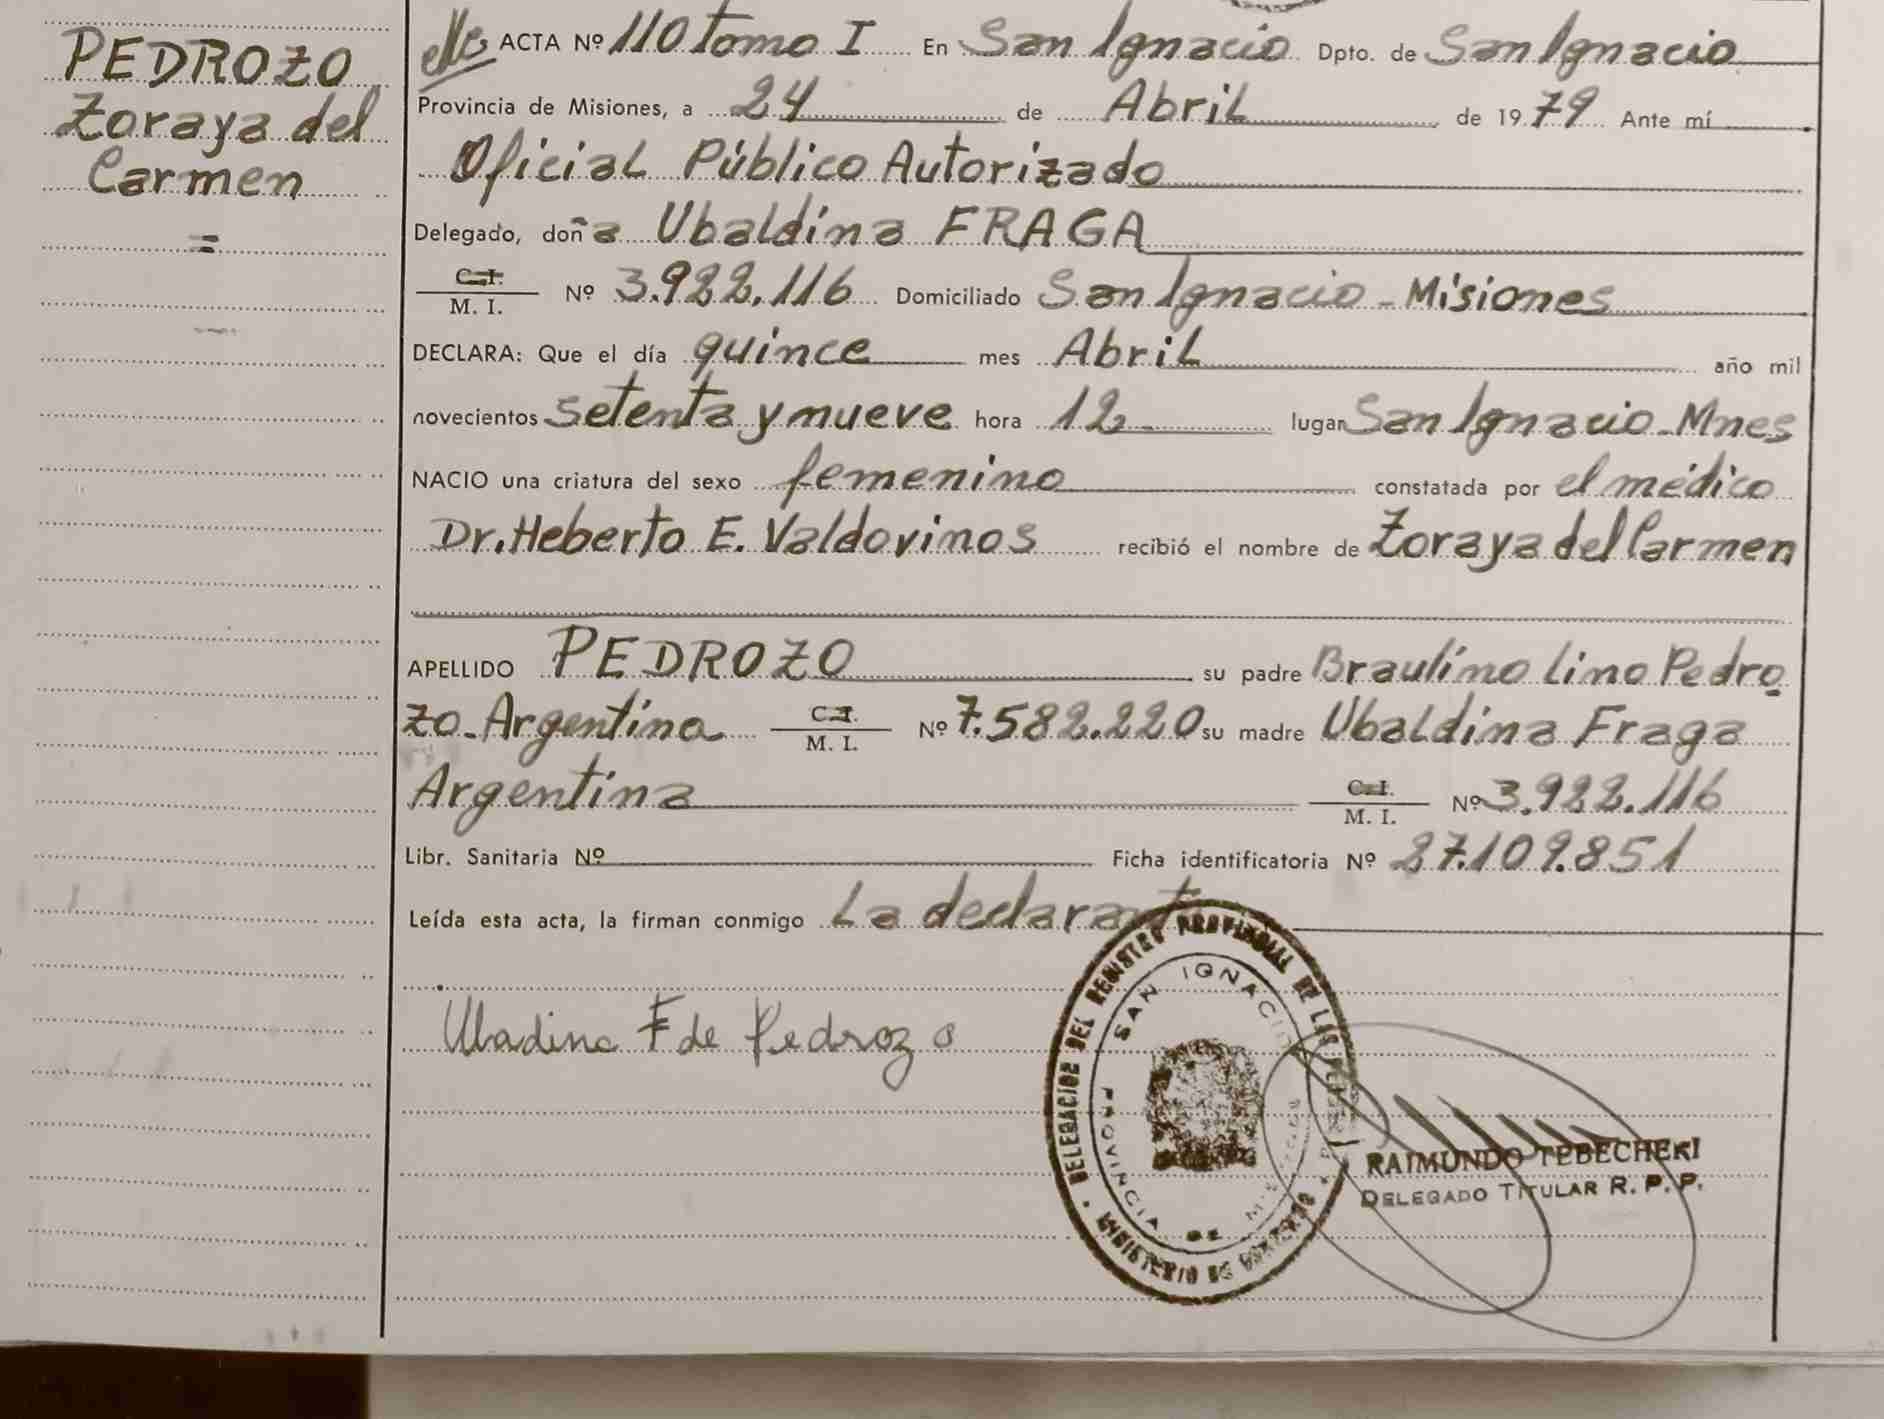 PEDROZO
Zoraya del
Carmen
=
ACTA Nº 110 Tomo I En San Ignacio Dpto. de San Ignacio
Provincia de Misiones, a 24 de Abril de 1979 Ante mí
Oficial Público Autorizado
Delegado, doña Ubaldina FRAGA
C.I.
M. I. Nº 3.922.116 Domiciliado San Ignacio - Misiones
DECLARA: Que el día quince mes Abril año mil
novecientos setenta y mueve hora 12 lugar San Ignacio - Mnes
NACIO una criatura del sexo femenino constatada por el médico
Dr. Heberto E. Valdovinos recibió el nombre de Zoraya del Carmen
APELLIDO PEDROZO su padre Braulino Lino Pedro
zo - Argentino C.I. M. I. Nº 7.582.220 su madre Ubaldina Fraga
Argentina C.I. M. I. Nº 3.922.116
Libr. Sanitaria Nº Ficha identificatoria Nº 27.109.851
Leída esta acta, la firman conmigo La declarante
Ubadina F de Pedrozo
DELEGACION DEL REGISTRO PROVINCIAL DE LAS PERSONAS
SAN IGNACIO
PROVINCIA DE MISIONES
MINISTERIO DE GOBIERNO
RAIMUNDO TEBECHERI
DELEGADO TITULAR R. P. P.